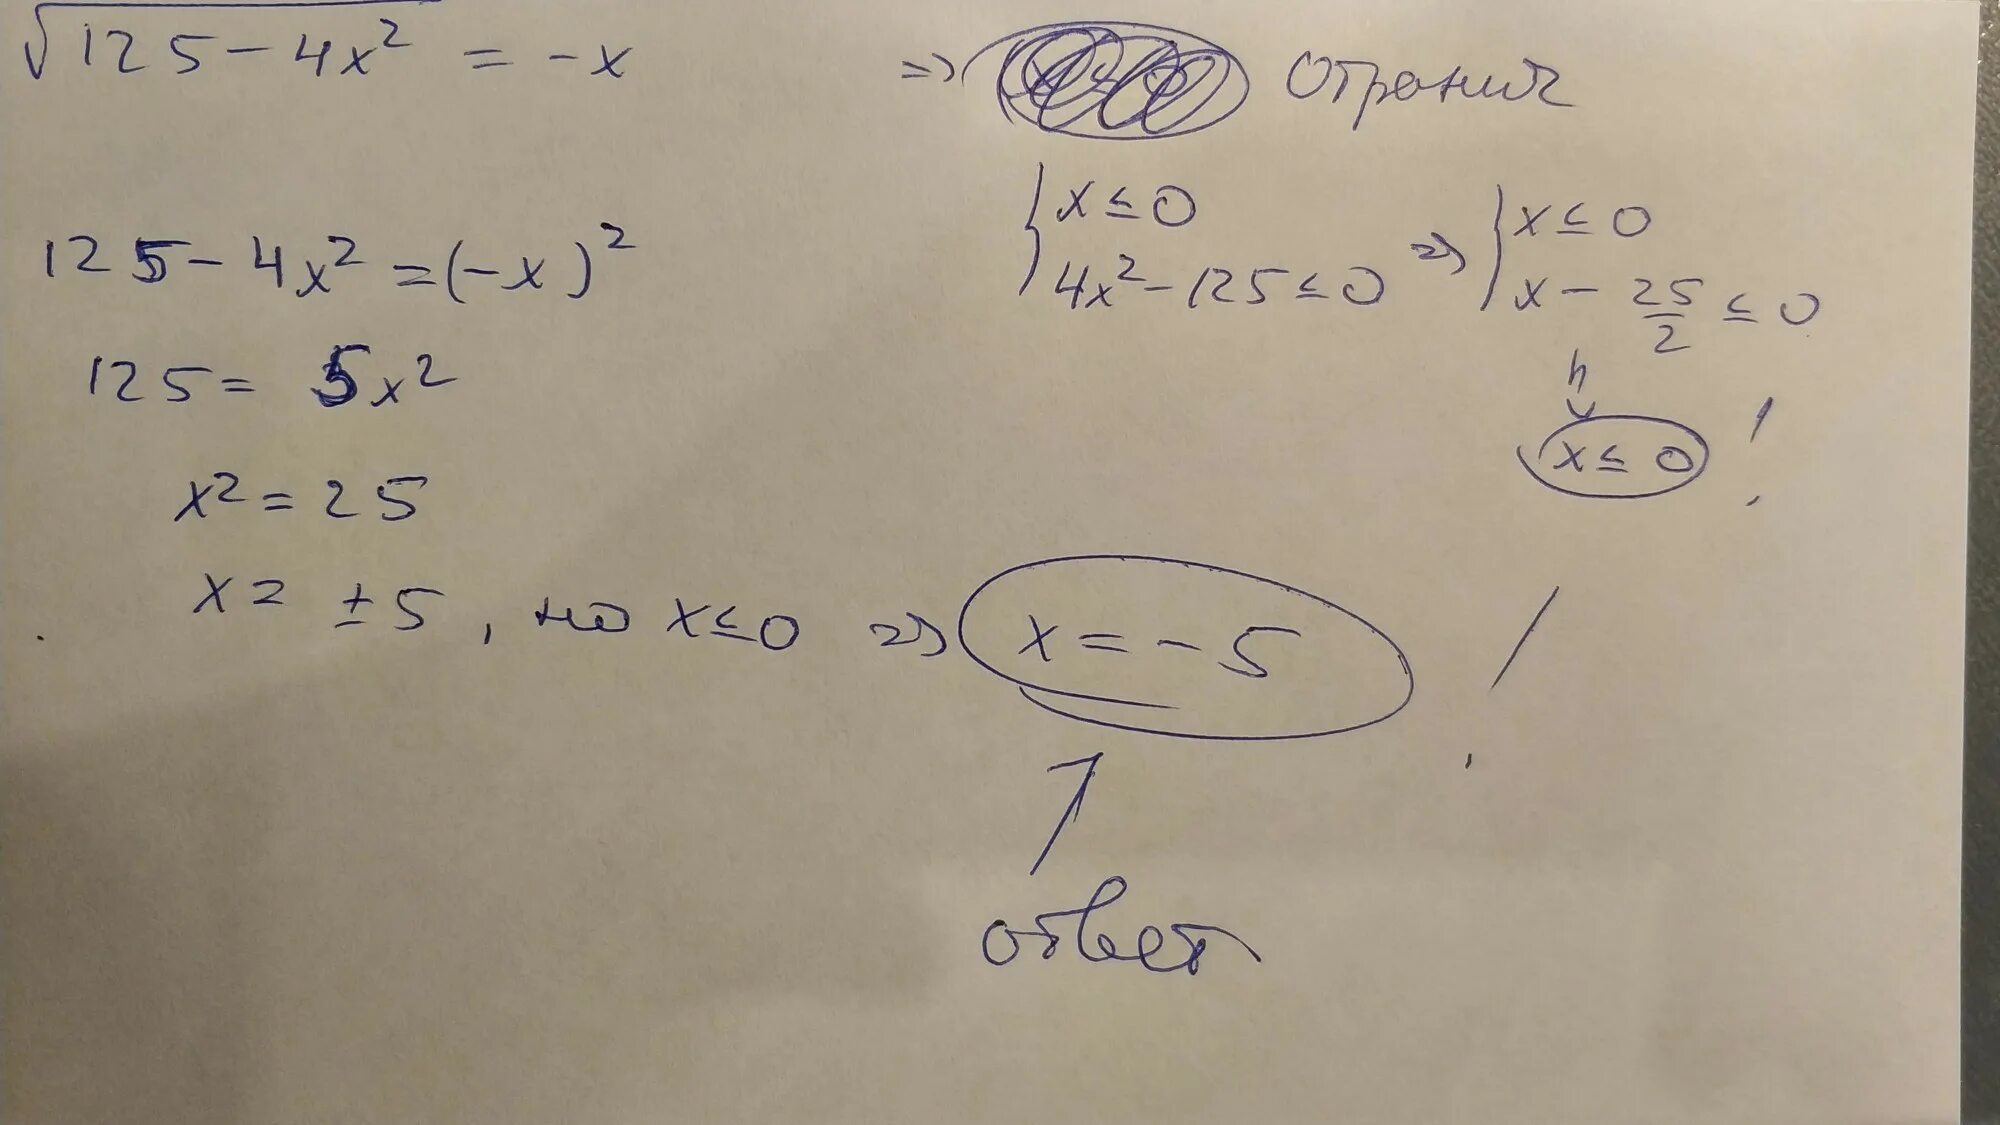 √125 - 4x² = -x => огранич
{ x ≤ 0
4x² - 125 ≤ 0 => { x ≤ 0
x - 25/2 ≤ 0
x ≤ 0 !
125 - 4x² = (-x)²
125 = 5x²
x² = 25
x = ±5, но x ≤ 0 => x = -5 !
ответ